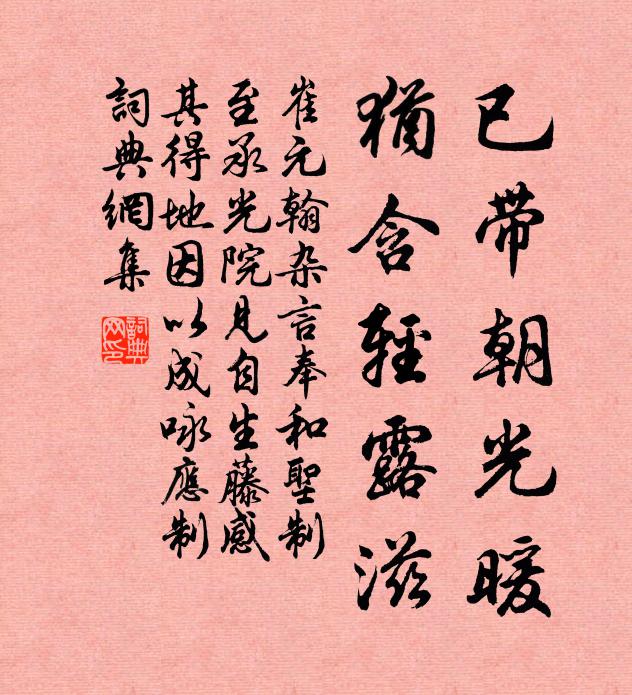 已带朝光暖
猶含輕露滋
崔元翰杂言奉和聖制
至承光院見自生藤感
其得地因以成咏應制
詞典網集
詞典网印